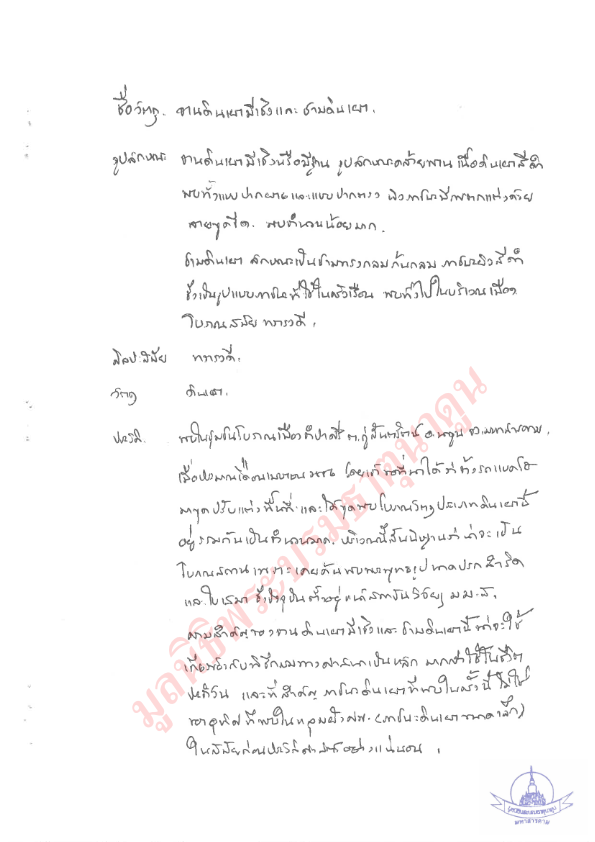 ชื่อวัตถุ. จานดินเผามีเชิงและชามดินเผา.
รูปลักษณะ จานดินเผามีเชิงหรือมีฐาน รูปลักษณะคล้ายพาน เนื้อดินเผาสีดำ
พบทั้งแบบปากผายและแบบปากตรง ผิวภาชนะมีการตกแต่งด้วย
ลายขูดขีด. พบจำนวนน้อยมาก.
ชามดินเผา ลักษณะเป็นชามทรงกลมก้นกลม ภาชนะผิวสีดำ
ซึ่งเป็นรูปแบบภาชนะที่ใช้ในครัวเรือน พบทั่วไปในบริเวณเมือง
โบราณสมัยทวารวดี.
ศิลป.สมัย ทวารวดี.
วัสดุ ดินเผา.
ประวัติ. พบในชุมชนโบราณเมืองจำปาศรี ต.กู่สันตรัตน์ อ.นาดูน จ.มหาสารคาม,
เมื่อประมาณเดือนเมษายน โดยเจ้าของที่นาได้จ้างรถแบคโฮ
มาขุดปรับแต่งพื้นที่ และได้ขุดพบโบราณวัตถุประเภทดินเผานี้
อยู่รวมกันเป็นจำนวนมาก. บริเวณนี้สันนิษฐานว่าน่าจะเป็น
โบราณสถาน เพราะเคยค้นพบพระพุทธรูปนาคปรกสำริด
และใบเสมา ซึ่งปัจจุบันตั้งอยู่ สถาบันวิจัยฯ ม.ม.ส.
ความสำคัญของจานดินเผามีเชิงและชามดินเผานี้น่าจะใช้
เกี่ยวข้องกับพิธีกรรมทางศาสนาเป็นหลัก มากกว่าใช้ในชีวิต
ประจำวัน และที่สำคัญ ภาชนะดินเผาที่พบในครั้งนี้ไม่ใช่
ของอุทิศที่พบในหลุมฝังศพ (ภาชนะดินเผาขนาดเล็ก)
ในสมัยก่อนประวัติศาสตร์อย่างแน่นอน.
มูลนิธิพระบรมธาตุนาดูน
มหาสารคาม